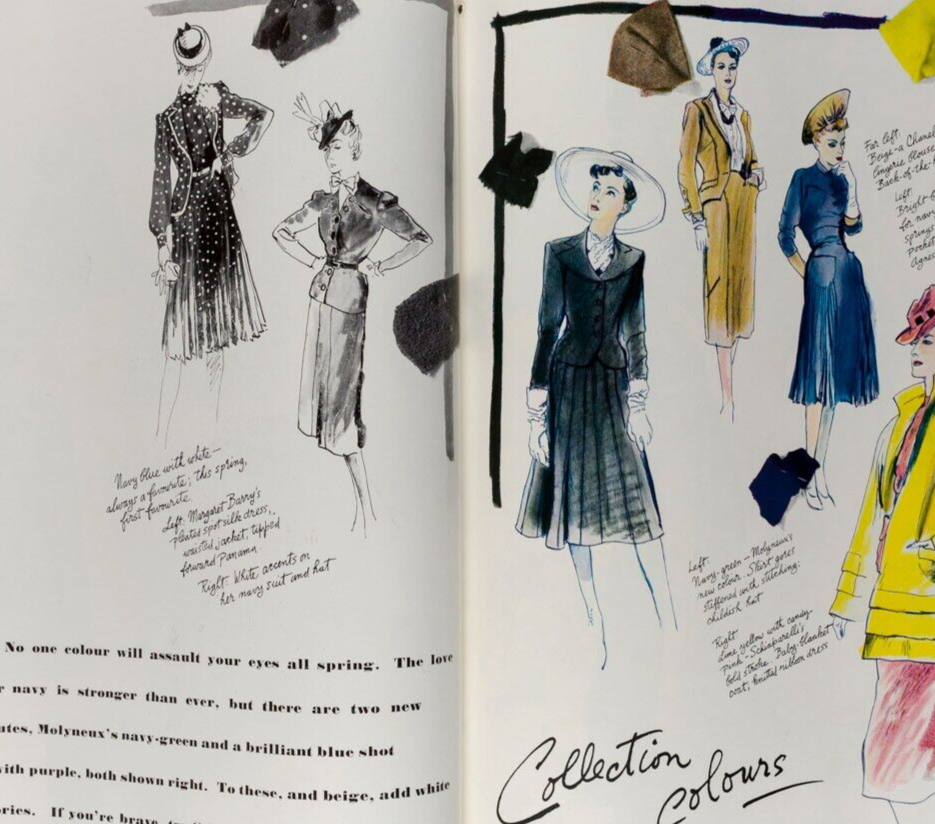 Navy blue with white—
always a favourite; this spring,
first favourite.
Left: Margaret Barry's
pleated spot silk dress,
waisted jacket, tipped
forward Panama
Right: White accents on
her navy suit and hat
No one colour will assault your eyes all spring. The love
navy is stronger than ever, but there are two new
Molyneux's navy-green and a brilliant blue shot
with purple, both shown right. To these, and beige, add white
If you're brave,
Far left:
Beige—a Chanel
lingerie blouse
Back-of-the-
Left:
Bright-
for navy
springs
Pocket
Agnes
Left:
Navy-green—Molyneux's
new colour. Skirt gores
stiffened with stitching;
childish hat
Right:
Lime yellow with candy-
pink—Schiaparelli's
bold stroke. Baby blanket
coat, knitted ribbon dress
Collection
Colours